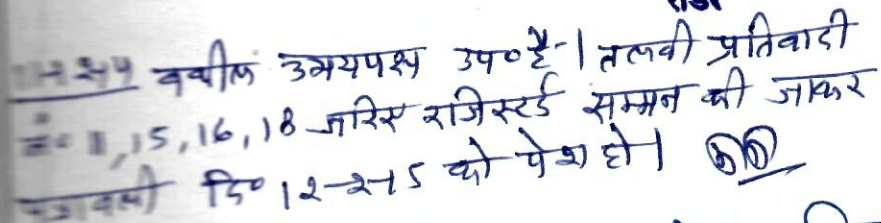 वकील उभयपक्ष उप० है-। तलवी प्रतिवादी
नं० 1, 15, 16, 18 जरिए रजिस्टर्ड सम्मन की जाकर
पत्रावली दि० 12-2-15 को पेश हो।